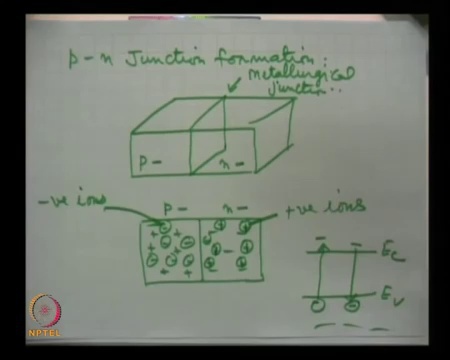 p-n Junction formation.
metallurgical
junction..
p- n-
p- n-
-ve ions +ve ions
Ec
Ev
NPTEL